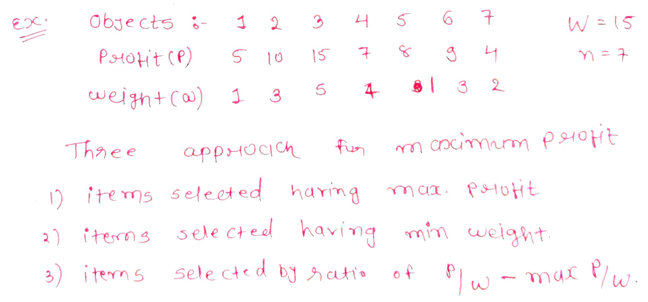 Ex. Objects :- 1 2 3 4 5 6 7 W = 15
Profit (P) 5 10 15 7 8 9 4 n = 7
weight (w) 1 3 5 4 1 3 2
Three approach for maximum profit
1) items selected having max. profit
2) items selected having min weight.
3) items selected by ratio of P/w - max P/w.